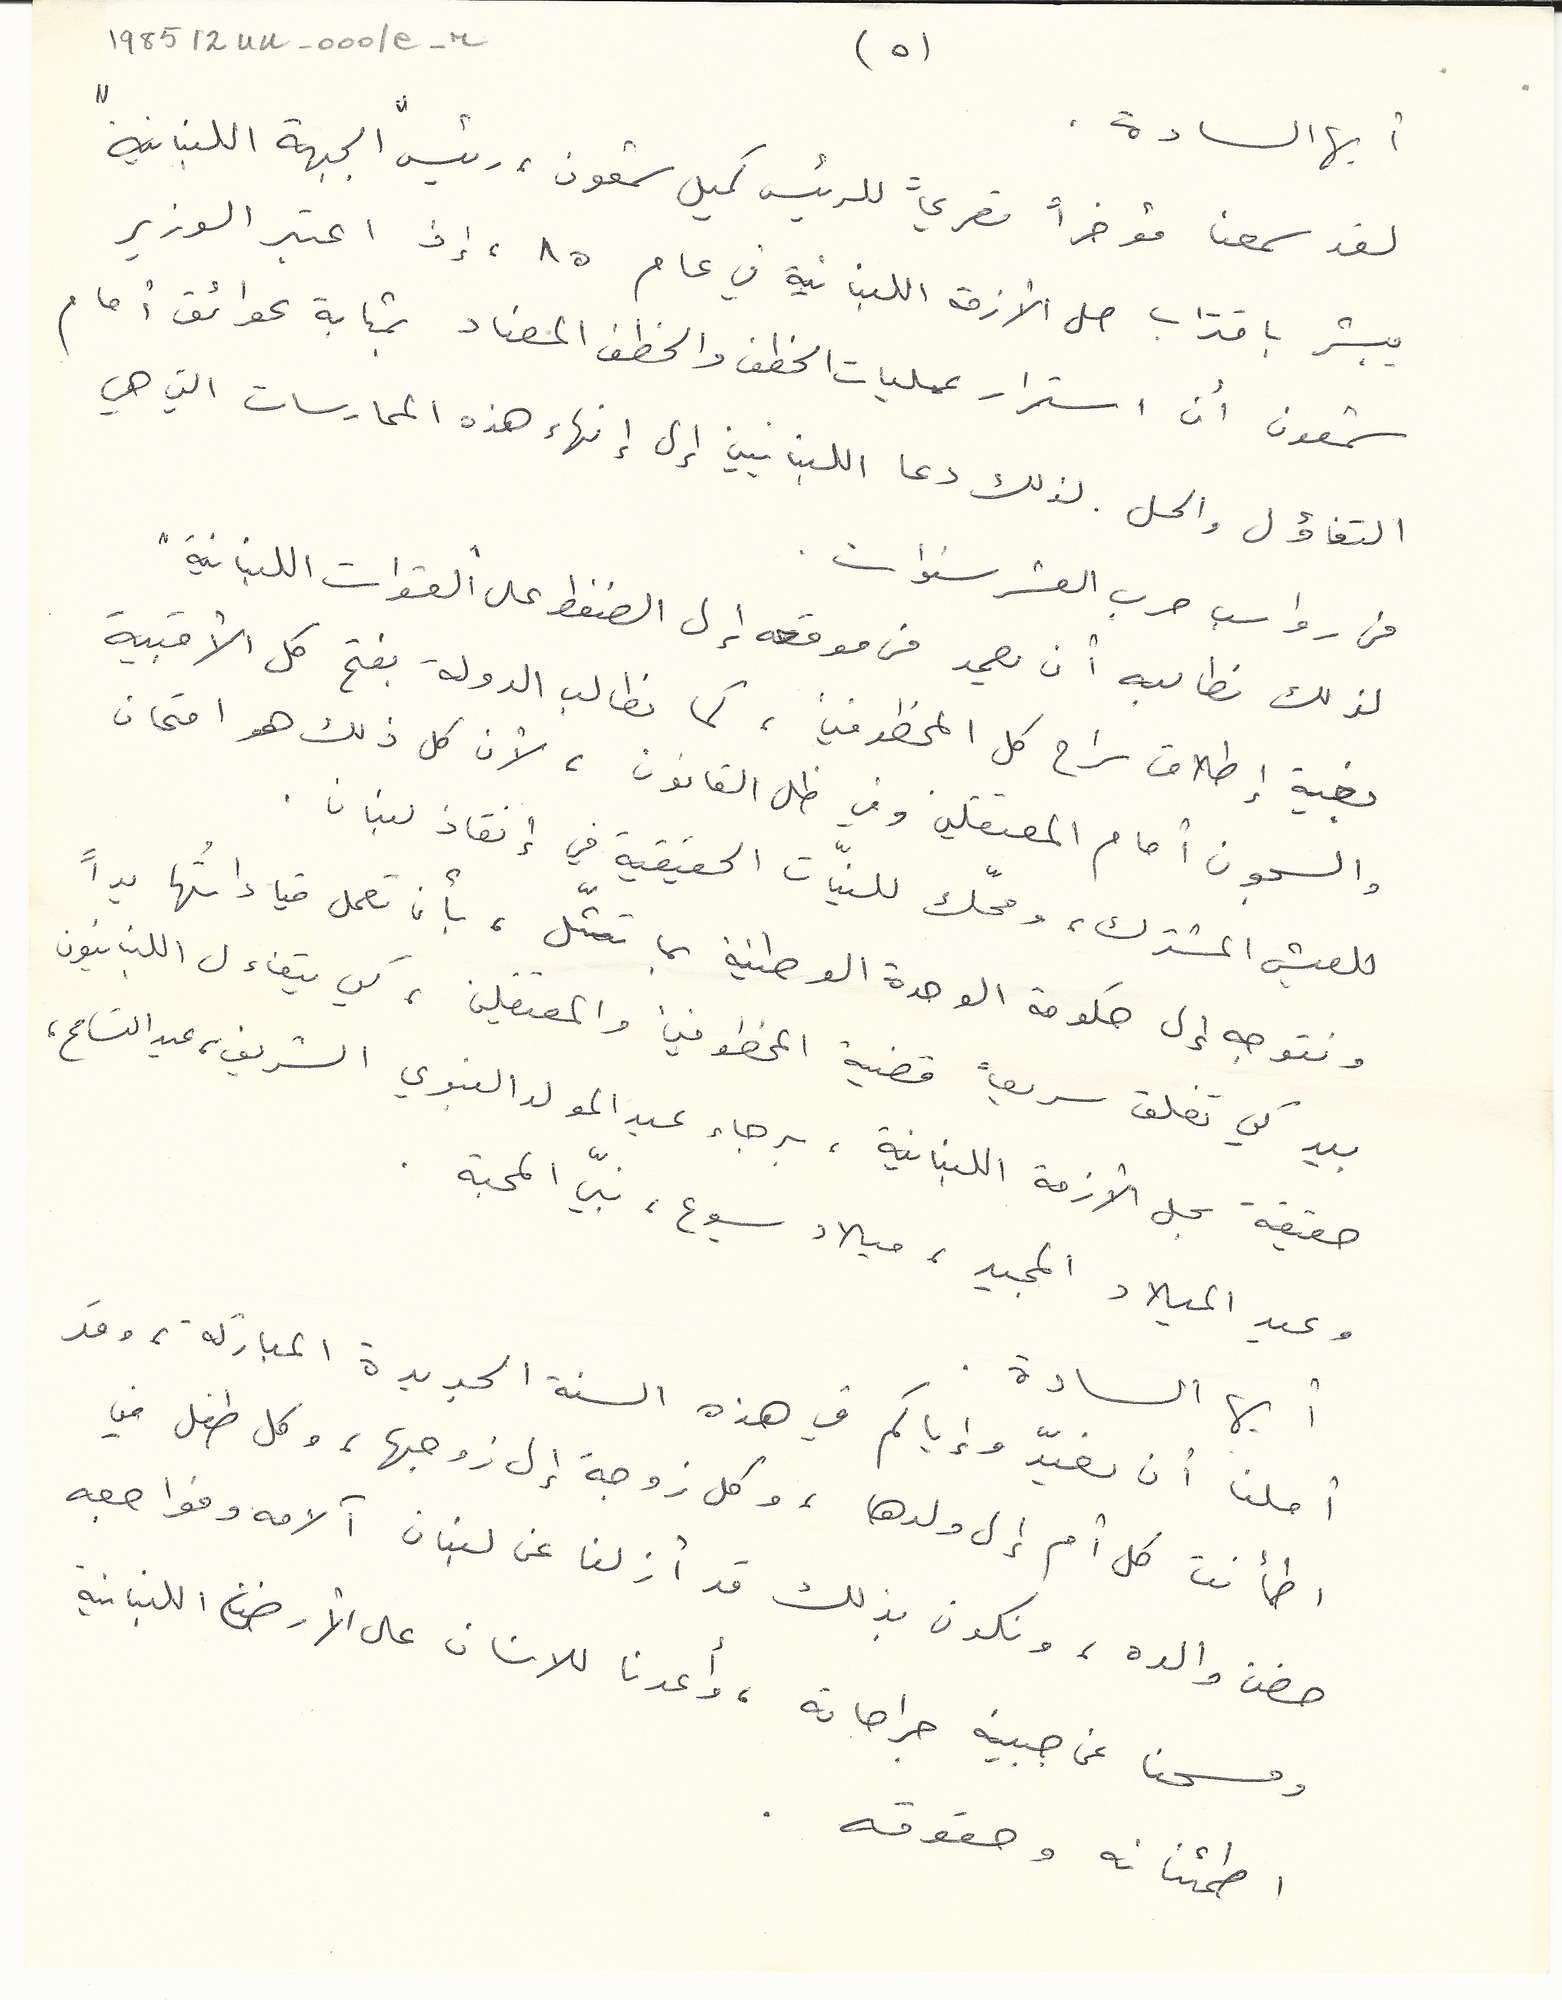 198512uu-0001e-r
(٥)
أيها السادة .
لقد سمعنا مؤخراً تصريحاً للرئيس كميل شمعون ، رئيس "الجبهة اللبنانية"
يبشر باقتراب حل الأزمة اللبنانية في عام ٨٥ ، إذ اعتبر الوزير
شمعون أن استمرار عمليات الخطف والخطف المضاد بمثابة عوائق أمام
التفاؤل والحل . لذلك دعا اللبنانيين إلى إنهاء هذه الممارسات التي هي
من رواسب حرب العشر سنوات .
لذلك نطالبه أن يعمد من موقعه إلى الضغط على "القوات اللبنانية"
بغية إطلاق سراح كل المخطوفين ، كما نطالب الدولة بفتح كل الأقبية
والسجون أمام المعتقلين وفي ظل القانون ، لأن كل ذلك هو امتحان
للعيش المشترك ، ومحّك للنيّات الحقيقية في إنقاذ لبنان .
ونتوجه إلى حكومة الوحدة الوطنية بما تمثّل ، بأن تعمل قياداتُها يداً
بيد كي تغلق سريعاً قضية المخطوفين والمعتقلين ، كي يتفاءل اللبنانيون
حقيقة بحل الأزمة اللبنانية ، برجاء عيد المولد النبوي الشريف ، عيد التسامح ،
وعيد الميلاد المجيد ، ميلاد يسوع ، نبيّ المحبة .
أيها السادة .
أملنا أن نعيّد وإياكم في هذه السنة الجديدة المباركة ، وقد
اطمأنت كل أم إلى ولدها ، وكل زوجة إلى زوجها ، وكل طفل في
حضن والده ، ونكون بذلك قد أزلنا عن لبنان آلامه ومواجعه
ومسحنا عن جبينه جراحاته ، وأعدنا للانسان على الأرض اللبنانية
اطمئنانه وحقوقه .